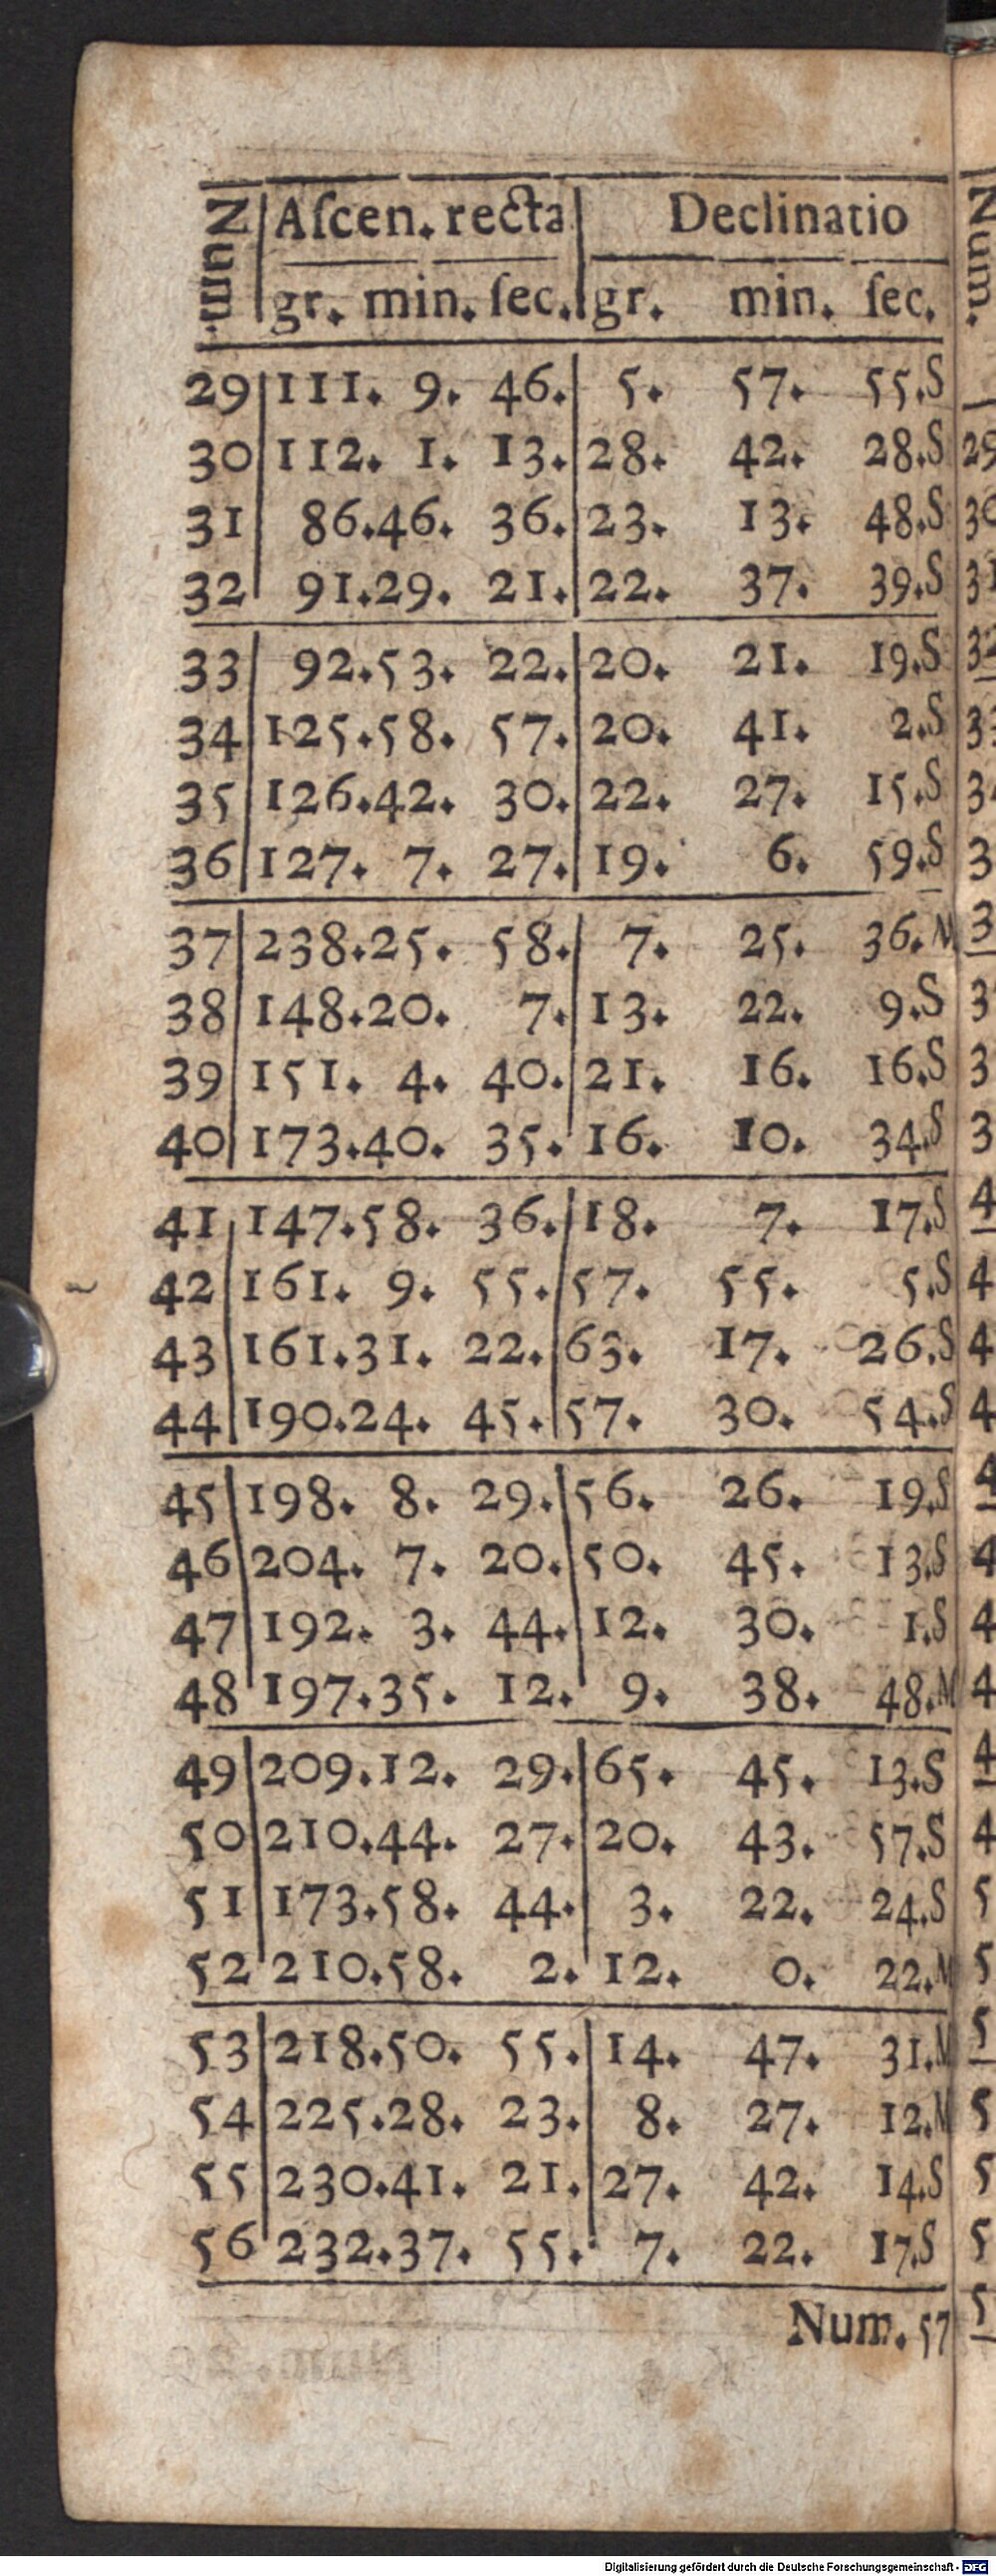 Num. Aſcen. recta Declinatio
gr. min. ſec. gr. min. ſec.
29 111. 9. 46. 5. 57. 55. S
30 112. 1. 13. 28. 42. 28. S
31 86. 46. 36. 23. 13. 48. S
32 91. 29. 21. 22. 37. 39. S
33 92. 53. 22. 20. 21. 19. S
34 125. 58. 57. 20. 41. 2. S
35 126. 42. 30. 22. 27. 15. S
36 127. 7. 27. 19. 6. 59. S
37 238. 25. 58. 7. 25. 36. M
38 148. 20. 7. 13. 22. 9. S
39 151. 4. 40. 21. 16. 16. S
40 173. 40. 35. 16. 10. 34. S
41 147. 58. 36. 18. 7. 17. S
42 161. 9. 55. 57. 55. 5. S
43 161. 31. 22. 63. 17. 26. S
44 190. 24. 45. 57. 30. 54. S
45 198. 8. 29. 56. 26. 19. S
46 204. 7. 20. 50. 45. 13. S
47 192. 3. 44. 12. 30. 1. S
48 197. 35. 12. 9. 38. 48. M
49 209. 12. 29. 65. 45. 13. S
50 210. 44. 27. 20. 43. 57. S
51 173. 58. 44. 3. 22. 24. S
52 210. 58. 2. 12. 0. 22. M
53 218. 50. 55. 14. 47. 31. M
54 225. 28. 23. 8. 27. 12. M
55 230. 41. 21. 27. 42. 14. S
56 232. 37. 55. 7. 22. 17. S
Num. 57
Num.
Digitalisierung gefördert durch die Deutsche Forschungsgemeinschaft - DFG